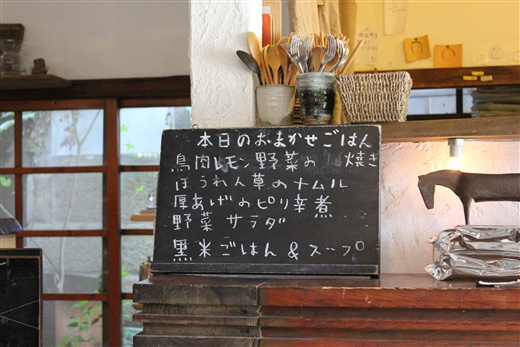 本日のおまかせごはん
鳥肉レモン野菜の 焼き
ほうれん草のナムル
厚あげのピリ辛煮
野菜 サラダ
黒米ごはん&スープ